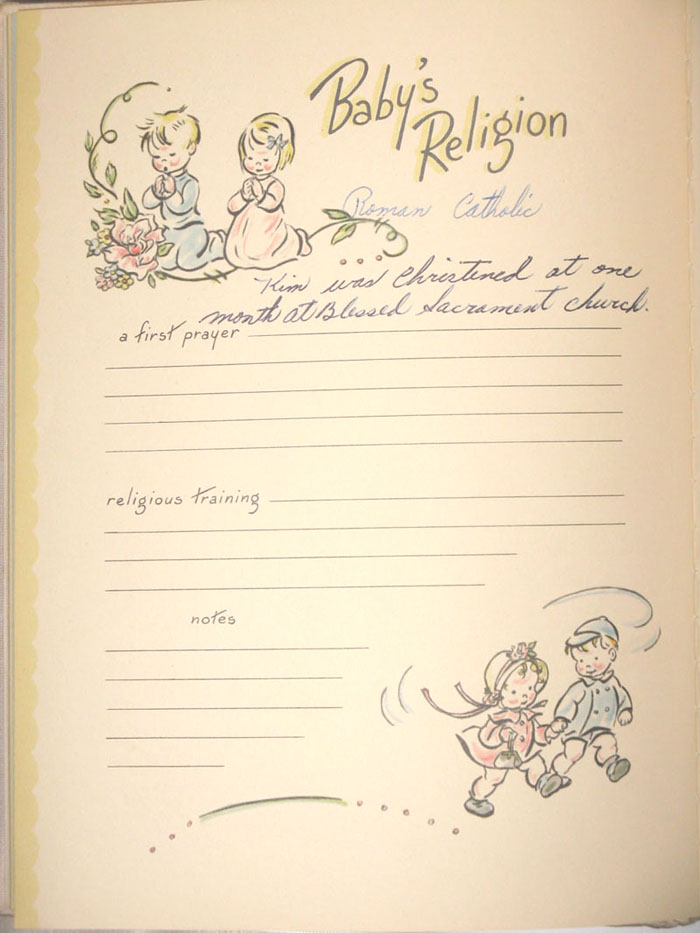 Baby's
Religion
Roman Catholic
Kim was Christened at one
month at Blessed Sacrament church.
a first prayer
religious training
notes